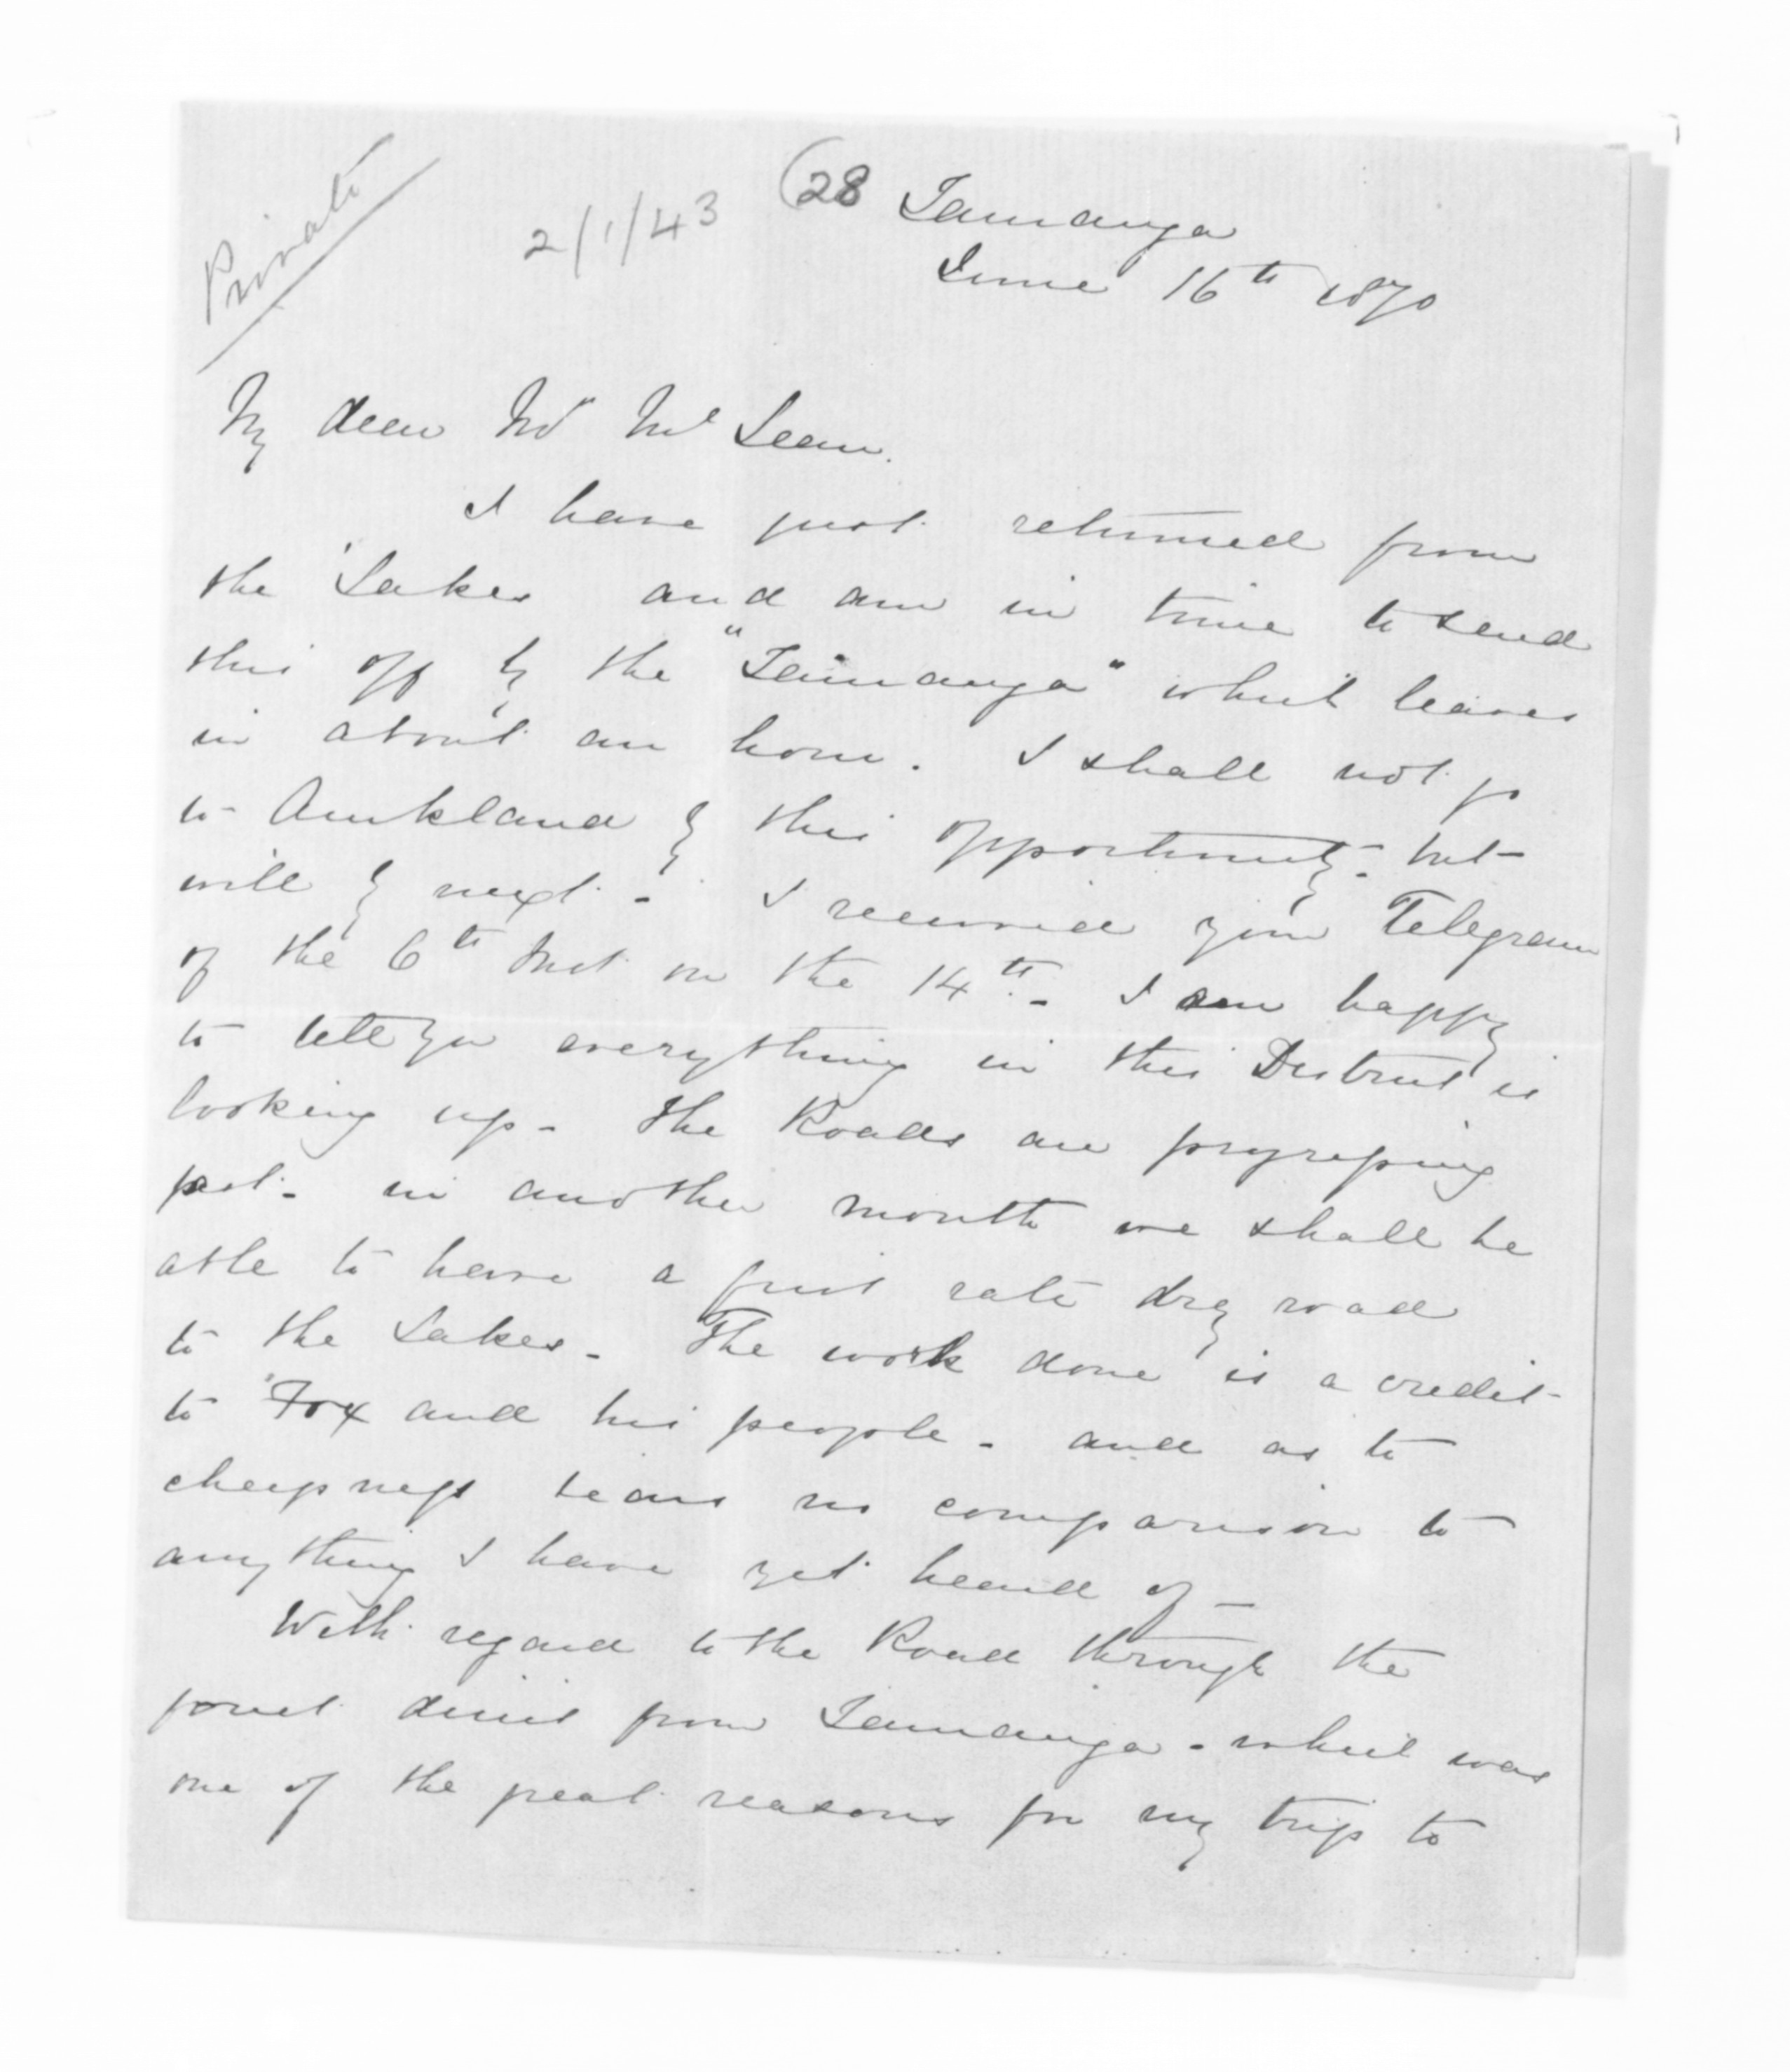 Private
2/1/43
(28 Tauranga
June 16th 1870
My dear Mr McLean.
I have just returned from
the Lakes and am in time to send
this off by the "Tauranga" which leaves
in about an hour. I shall not go
to Auckland by this opportunity - but
will by next - I received your Telegram
of the 6th Inst on the 14th - I am happy
to tell you everything in this District is
looking up - The Roads are progressing
fast - in another month we shall be
able to have a first rate dry road
to the Lakes - The work done is a credit
to Fox and his people - and as to
cheapness bears no comparison to
anything I have yet heard of -
With regard to the Road through the
forest direct from Tauranga - which was
one of the great reasons for my trip to